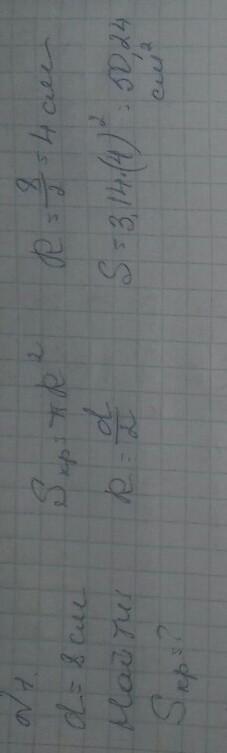 √1.
d = 8 см
Найти:
Sкр = ?
Sкр = πR²
R = d/2
R = 8/2 = 4 см
S = 3,14·(4)² = 50,24
см²